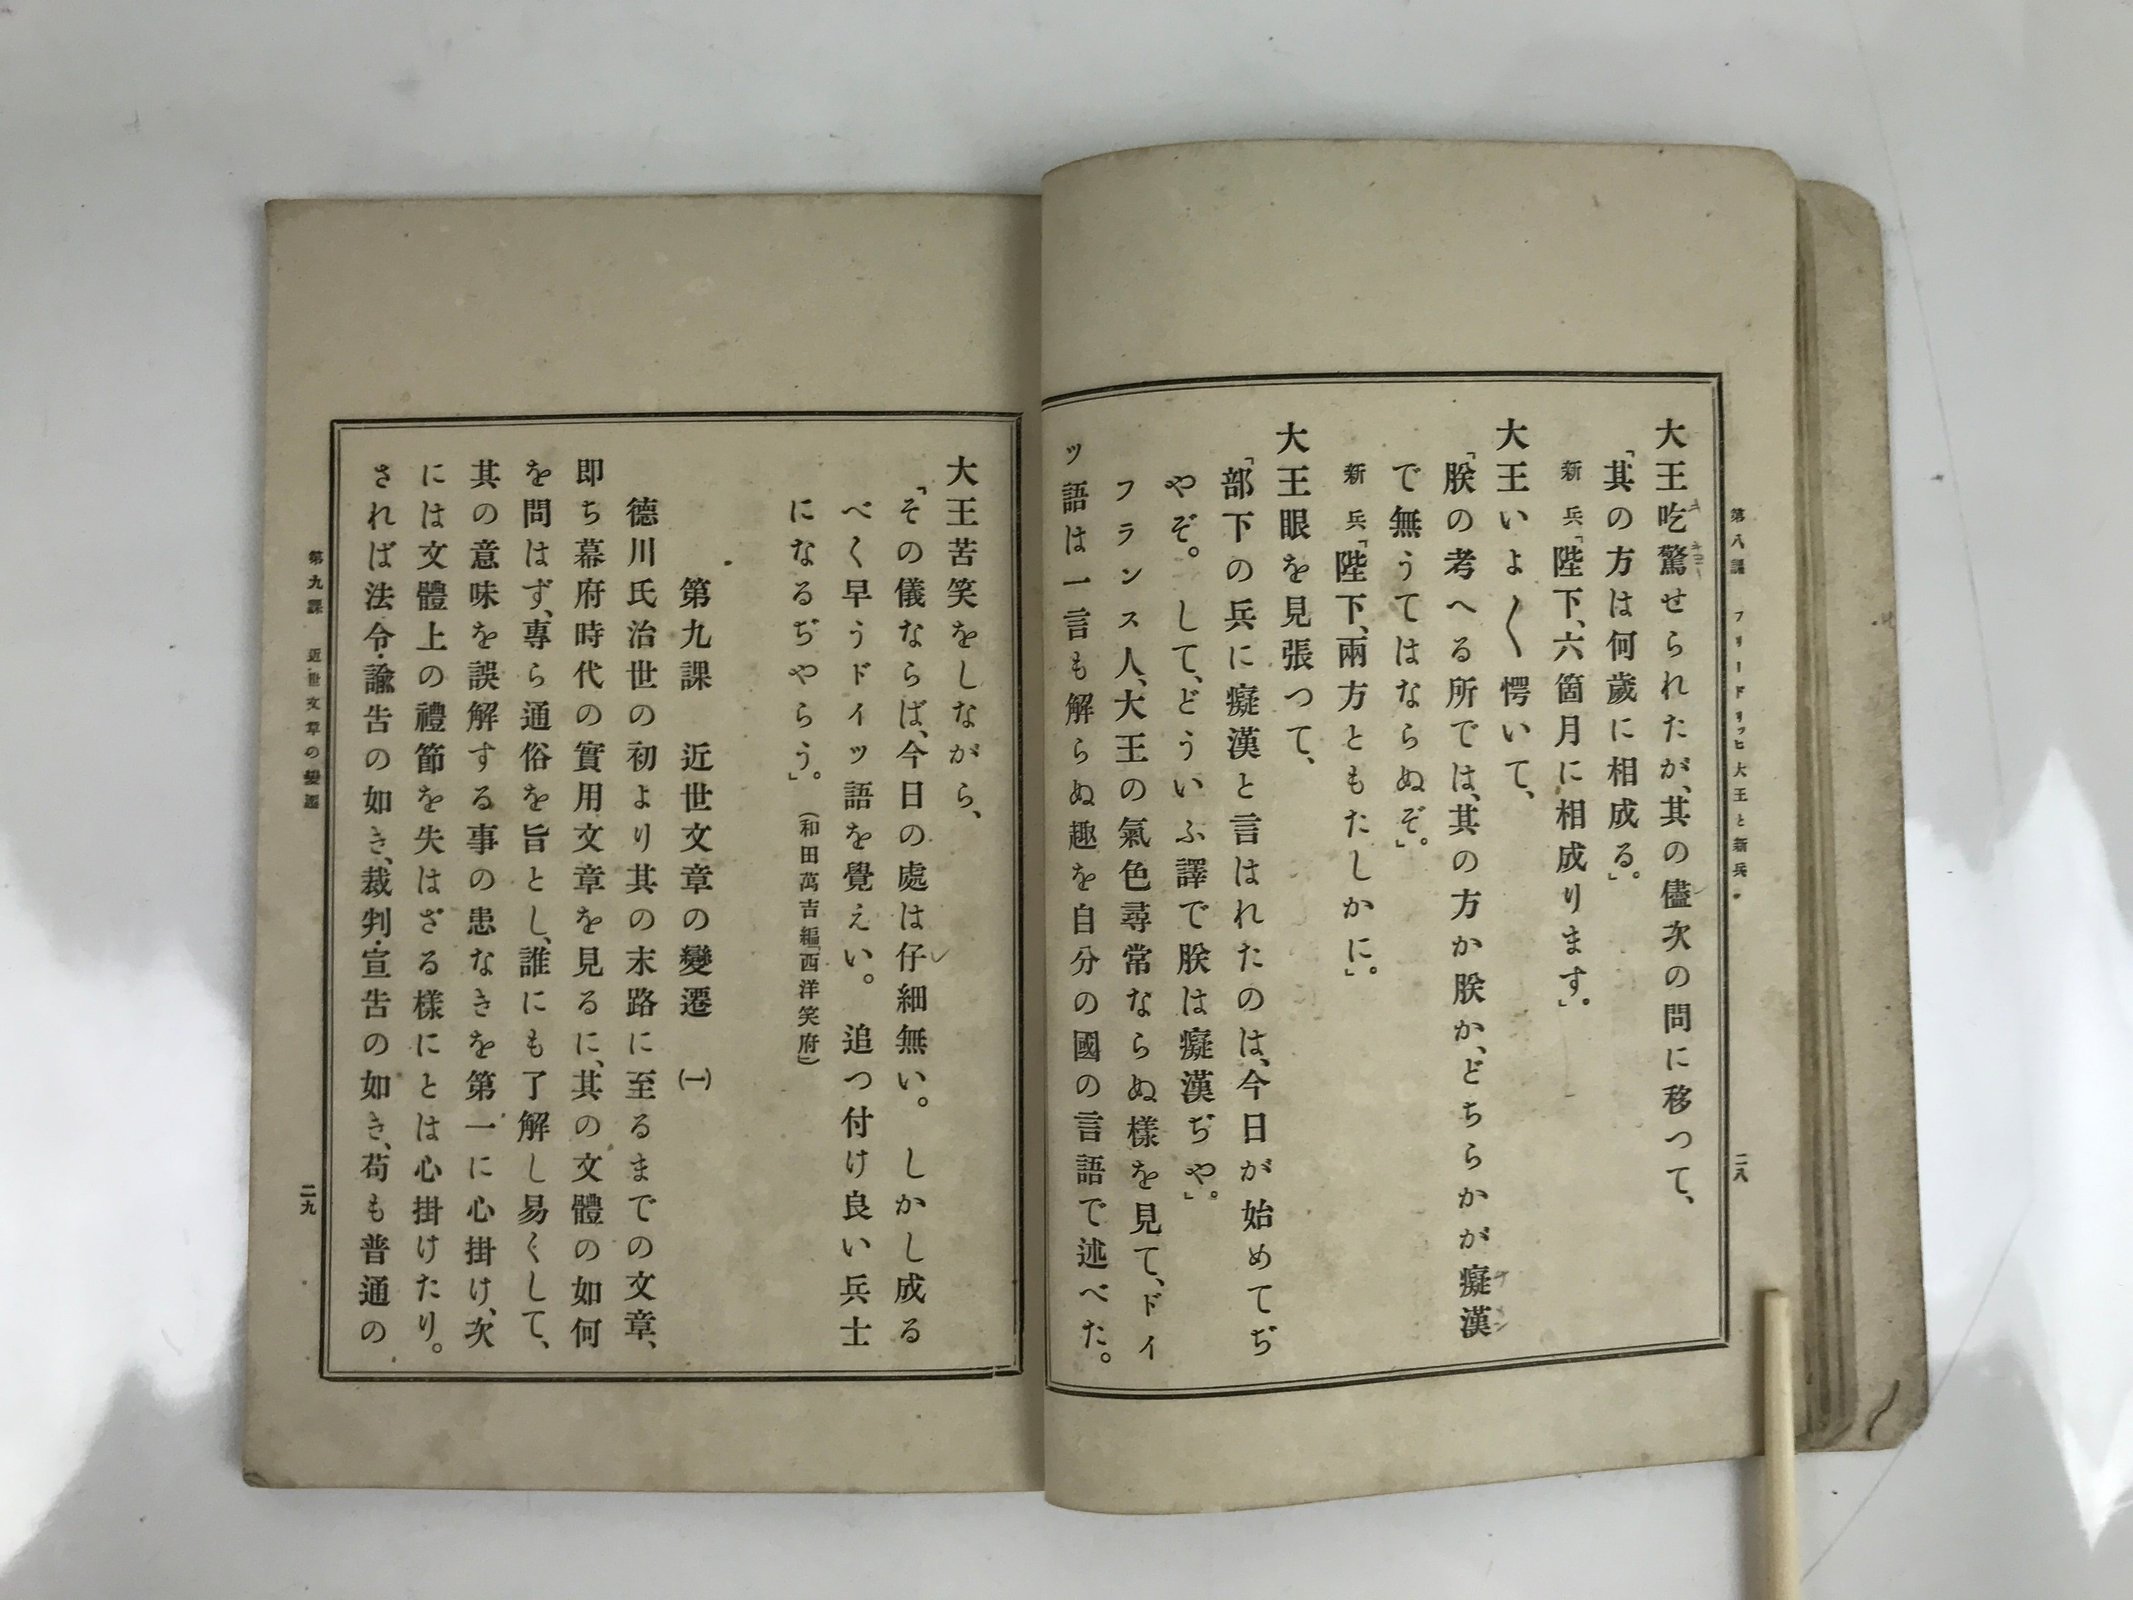 第八課　フリードリッヒ大王と新兵　二八
大王吃驚せられたが、其の儘次の問に移つて、
「其の方は何歲に相成る。」
新兵「陛下、六箇月に相成ります。」
大王いよ〱愕いて、
「朕の考へる所では、其の方か朕か、どちらかが癡漢
で無うてはならぬぞ。」
新兵「陛下、兩方ともたしかに。」
大王眼を見張つて、
「部下の兵に癡漢と言はれたのは、今日が始めてぢ
やぞ。して、どういふ譯で朕は癡漢ぢや。」
フランス人、大王の氣色尋常ならぬ樣を見て、ドイ
ツ語は一言も解らぬ趣を自分の國の言語で述べた。
大王苦笑をしながら、
「その儀ならば、今日の處は仔細無い。しかし成る
べく早うドイツ語を覺えい。追つ付け良い兵士
になるぢやらう。」（和田萬吉編「西洋笑府」）
第九課　近世文章の變遷　㈠
德川氏治世の初より其の末路に至るまでの文章、
卽ち幕府時代の實用文章を見るに、其の文體の如何
を問はず、專ら通俗を旨とし、誰にも了解し易くして、
其の意味を誤解する事の患なきを第一に心掛け、次
には文體上の禮節を失はざる樣にとは心掛けたり。
されば法令・諭吿の如き、裁判・宣吿の如き、苟も普通の
第九課　近世文章の變遷　二九